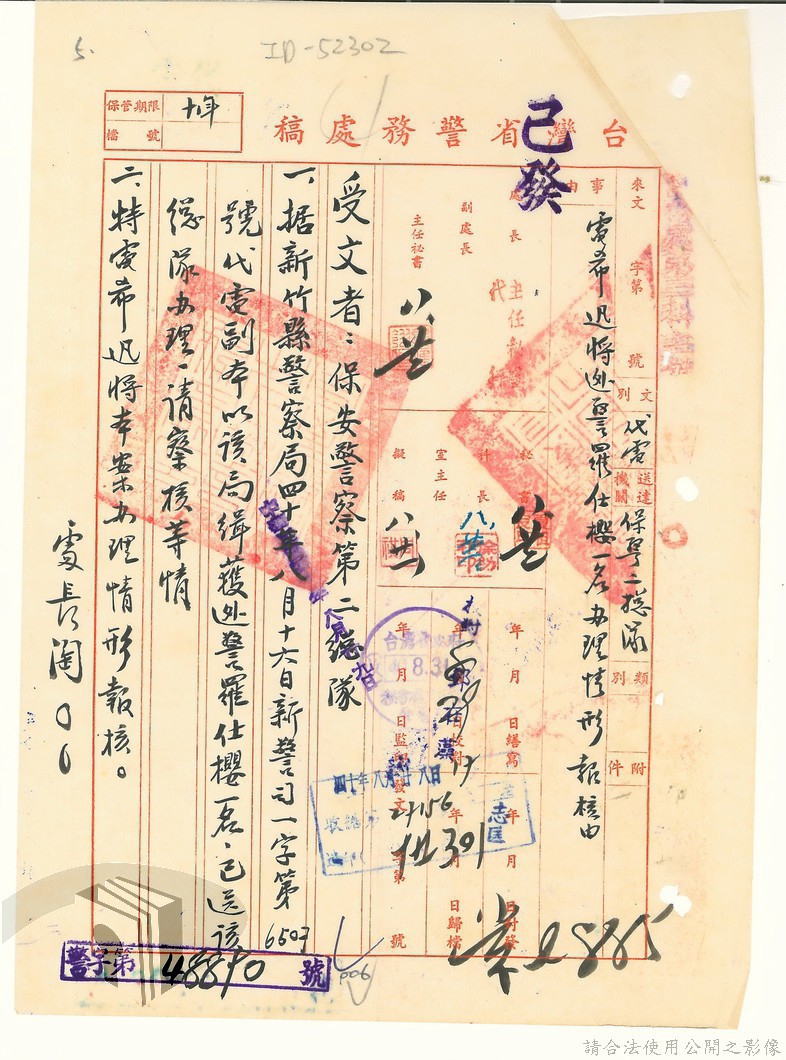 5.
ID-52302
保管期限 十年
檔號
台灣省警務處稿
已發
來文 字第 號
文別 代電
送達機關 保警二總隊
類別
附件
事由
電希迅將逃警羅仕櫻一名办理情形報核由
處長
副處長
主任祕書
祕書
科長
室主任
擬稿
年 月 日繕寫
年 月 日校對
年 月 日監印
年 月 日封發
年 月 日歸檔
發文 字第 號
受文者：保安警察第二總隊
一、据新竹縣警察局四十年八月十六日新警司一字第6503
號代電副本以該局緝獲逃警羅仕櫻一名，已送該
總隊办理，請察核等情
二、特電希迅將本案办理情形報核。
處長陶〇〇
四十年八月廿八日
警字第 48890 號
006
請合法使用公開之影像